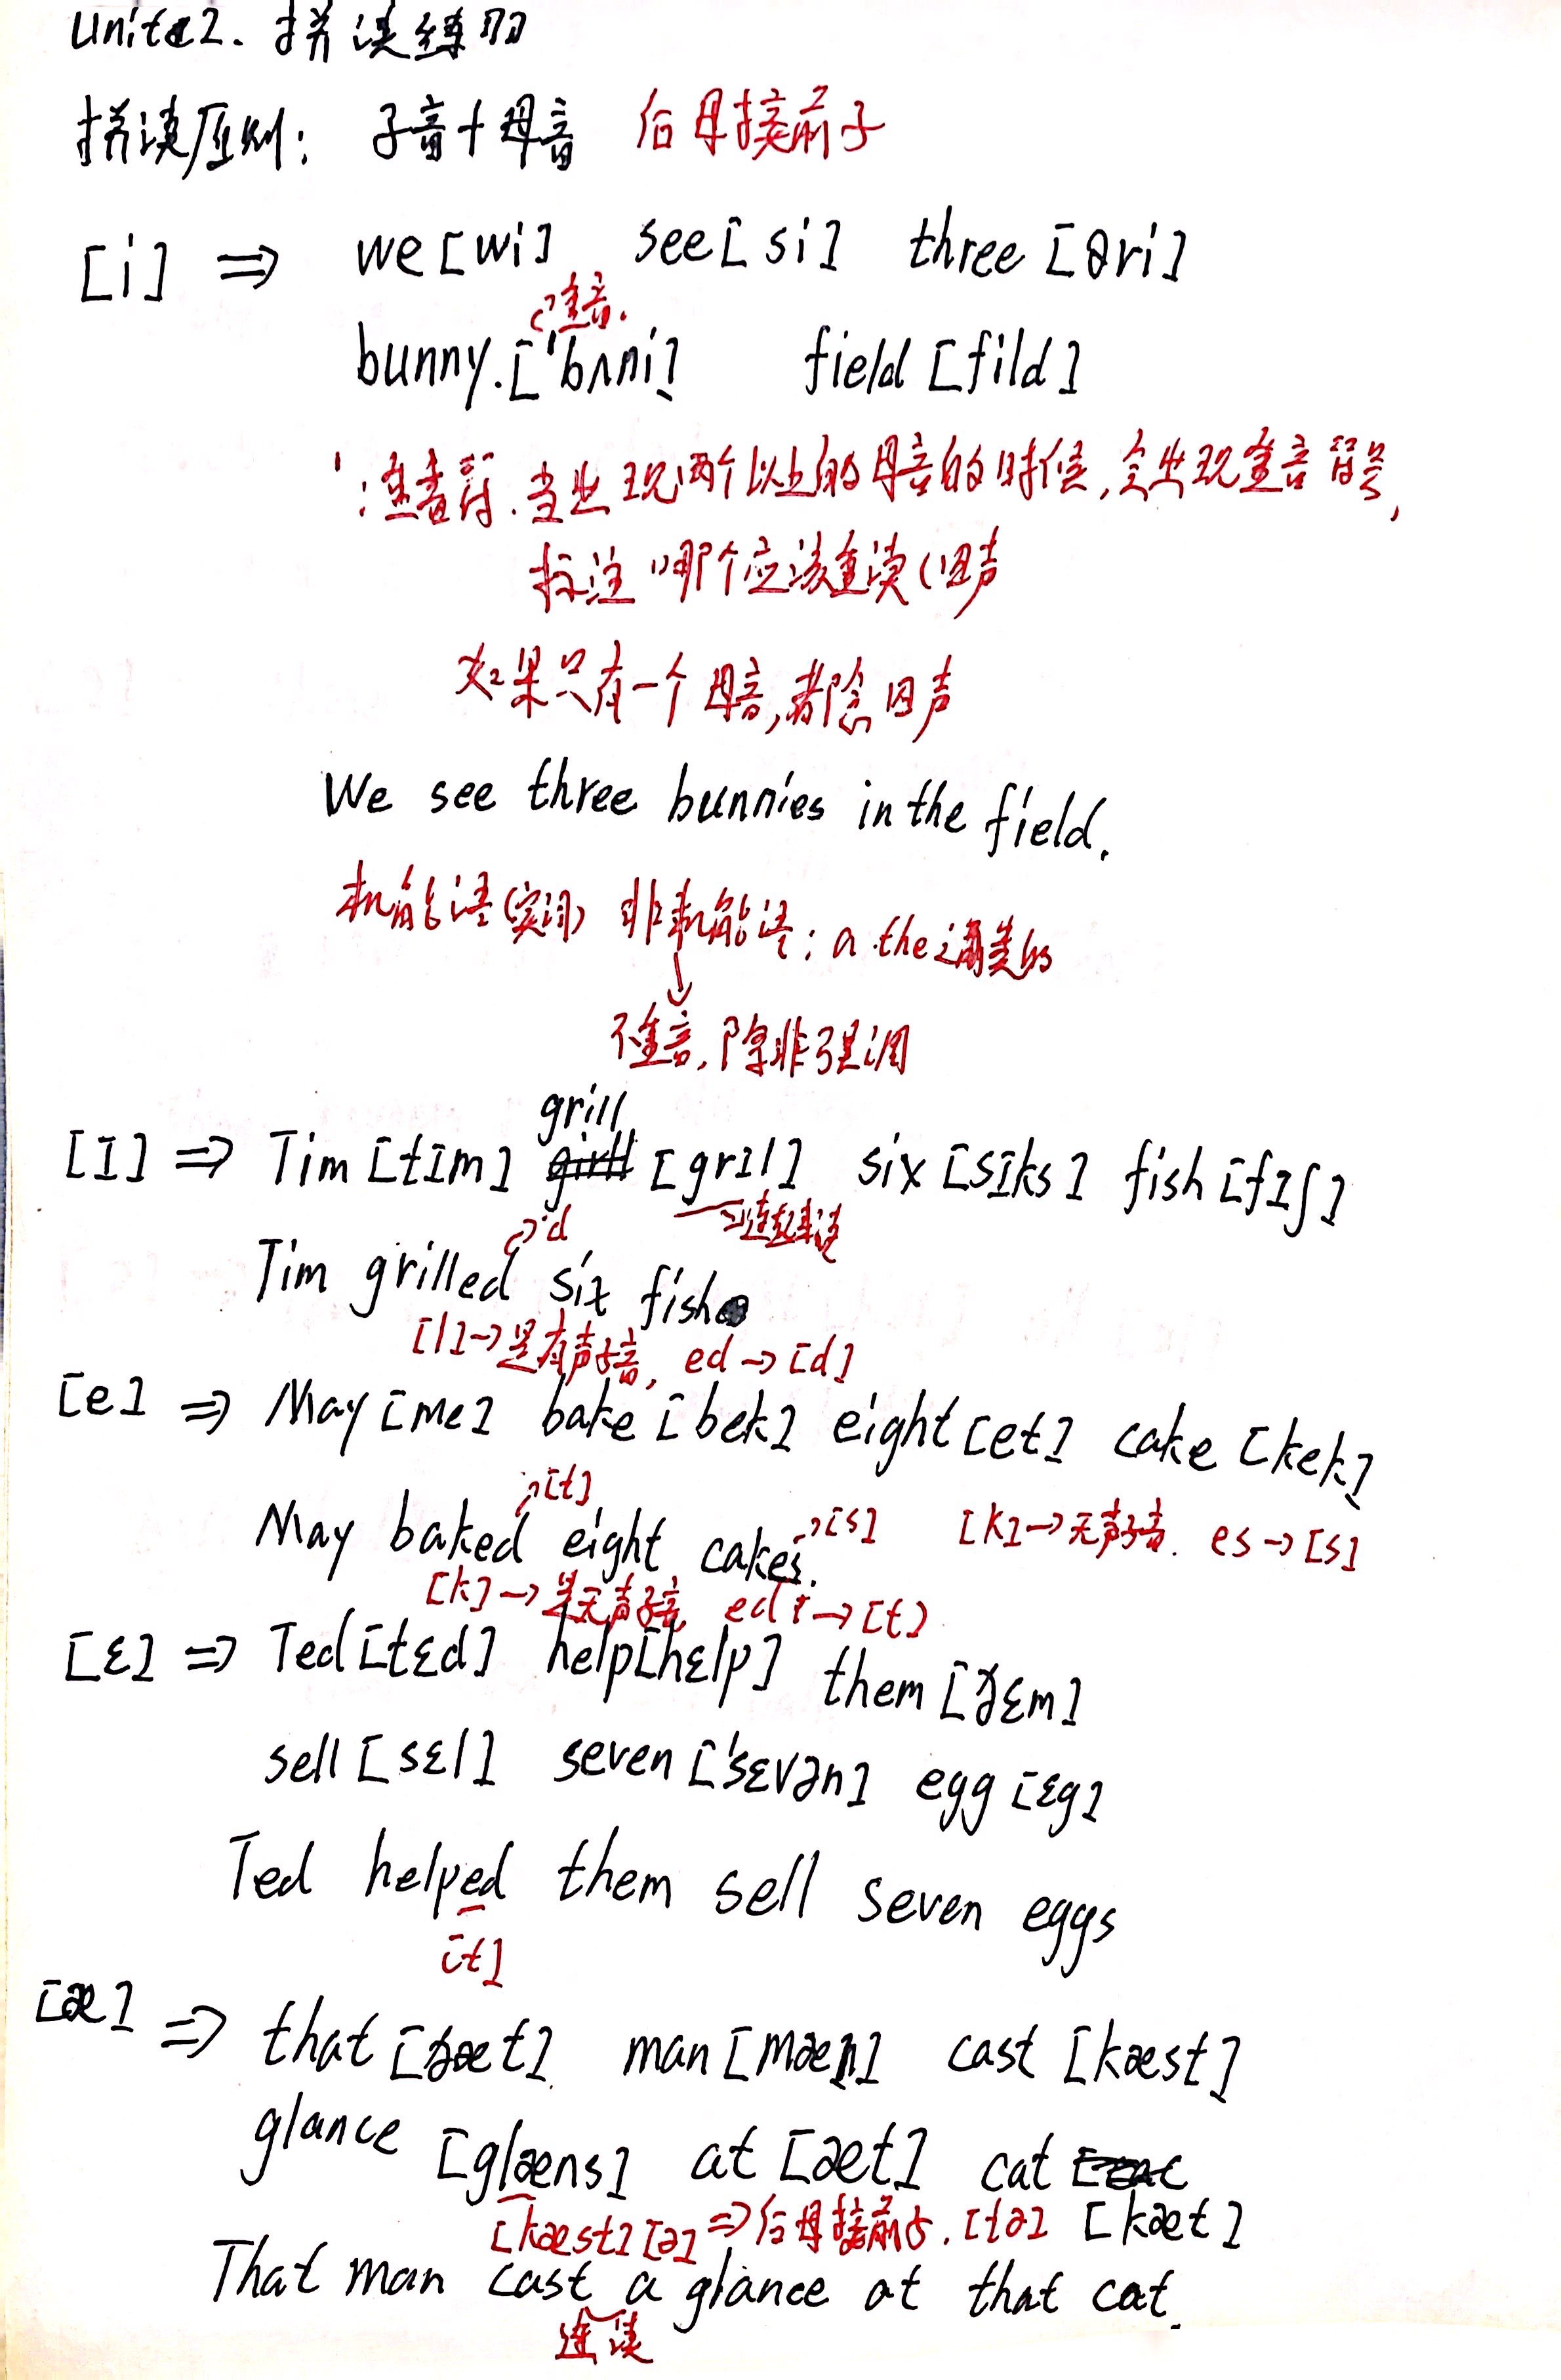 Unit2. 拼读练习
拼读原则: 子音+母音 后母接前子
[i] ⇒ we[wi] see[si] three [θri]
重音.
bunny.['bʌni] field [fild]
': 重音符. 当出现两个以上的母音的时候, 会出现重音符号,
标注哪个应该重读(四声
如果只有一个母音, 都念四声
We see three bunnies in the field.
机能语(实词) 非机能语: a the 这类的
↓
不重音, 除非强调
grill
[I] ⇒ Tim [tIm] [grIl] six [sIks] fish [fIʃ]
d 连起来读
Tim grilled six fish
[l]→是有声子音, ed→[d]
[e] ⇒ May [me] bake [bek] eight [et] cake [kek]
[t]
May baked eight cakes. [s] [k]→无声子音. es→[s]
[k]→是无声子音, ed→[t]
[ɛ] ⇒ Ted [tɛd] help[hɛlp] them [ðɛm]
sell [sɛl] seven ['sɛvən] egg [ɛg]
Ted helped them sell seven eggs
[t]
[æ] ⇒ that [ðæt] man [mæn] cast [kæst]
glance [glæns] at [æt] cat
[kæst] [ə]⇒后母接前子. [tə] [kæt]
That man cast a glance at that cat.
连读